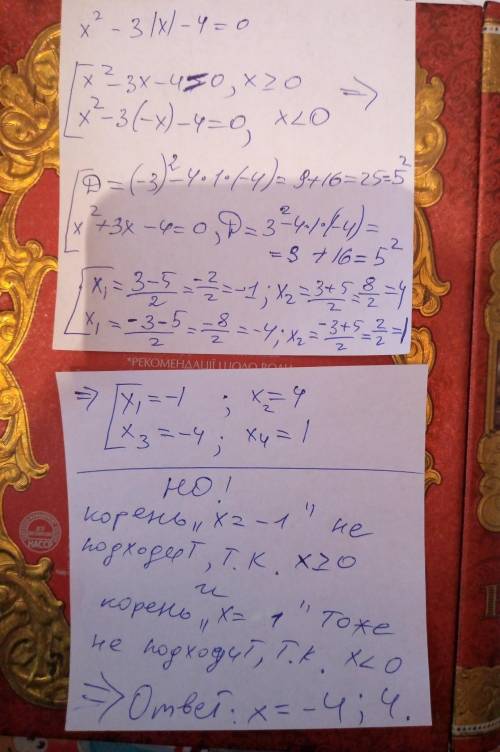 x² - 3|x| - 4 = 0
[x² - 3x - 4 = 0, x ≥ 0 =>
[x² - 3(-x) - 4 = 0, x < 0
[Д = (-3)² - 4·1·(-4) = 9 + 16 = 25 = 5²
[x² + 3x - 4 = 0, Д = 3² - 4·1·(-4) =
= 9 + 16 = 5²
[x₁ = (3-5)/2 = -2/2 = -1; x₂ = (3+5)/2 = 8/2 = 4
[x₁ = (-3-5)/2 = -8/2 = -4; x₂ = (-3+5)/2 = 2/2 = 1
*РЕКОМЕНДАЦІЇ ЩОДО
=> [x₁ = -1 ; x₂ = 4
[x₃ = -4 ; x₄ = 1
НО!
корень „x = -1" не
подходит, т.к. x ≥ 0
и
корень „x = 1" тоже
не подходит, т.к. x < 0
=> Ответ: x = -4; 4.
НАССР